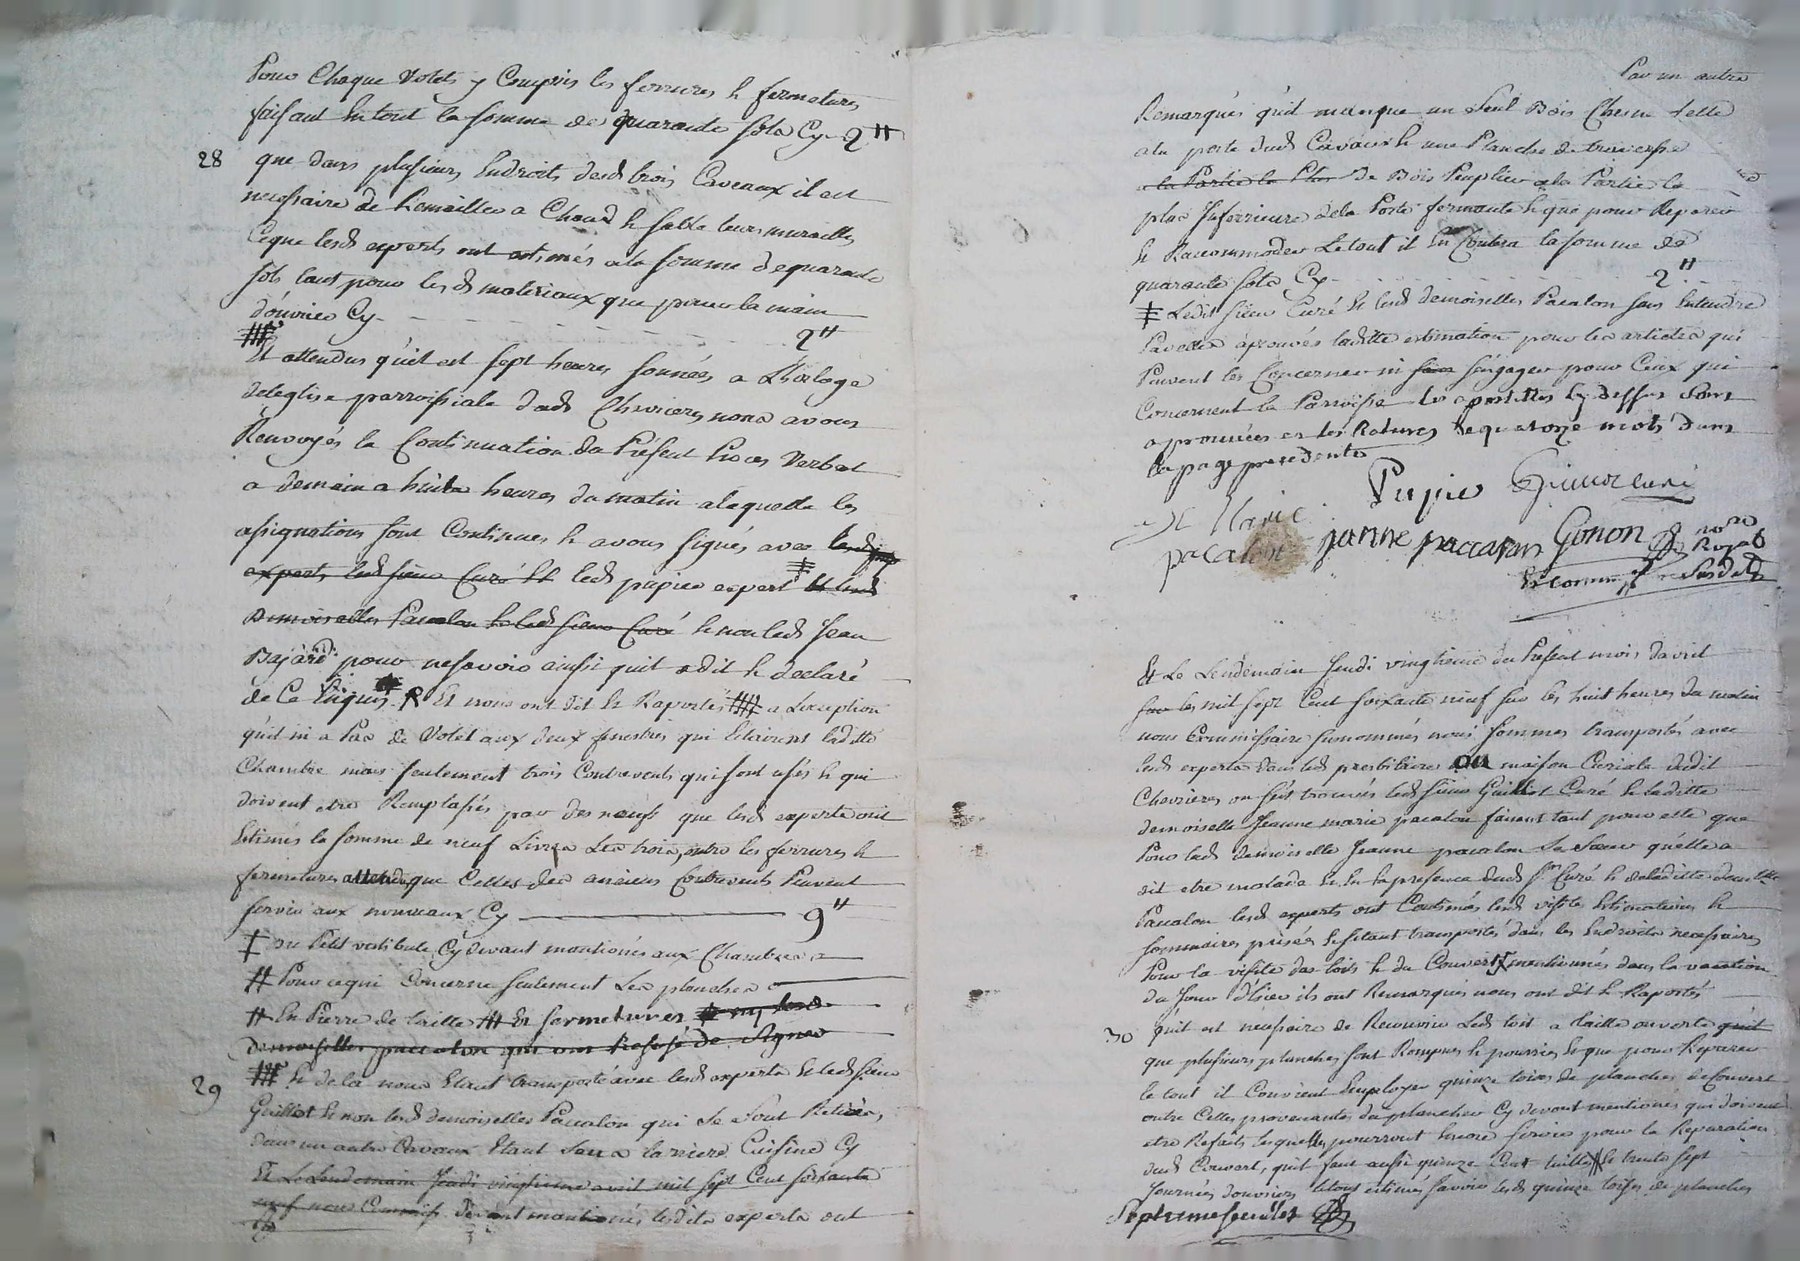 Pour Chaque Volets y Compris les ferrures & fermetures
faisant En tout la somme de quarante sols Cy 2#
28 que dans plusieurs Endroits desd trois Caveaux il est
necessaire de Remailler a Chaud & sable leurs murailles
Ceque lesd experts ont estimés ala somme de quarante
sols tant pour lesd materiaux que pour la main
d'ouvrier Cy 2#
Et attendus qu'il est sept heures sonnées a L'horloge
deleglise parroissiale dud Chevrieres nous avons
Renvoyés la Continuation du Présent Proces Verbal
a demain a huite heures du matin alaquelle les
assignations sont Continues & avons signés avec lesd
experts led sieur Curé Et led pupier expert Et lesd
demoiselles Pacalon & led sieur Curé & non led Jean
Bajard pour nesavoir ainsi quil a dit & declaré
de Ce Enquis Et nous ont dit & Raportés a Lexception
qu'il ni a Pas de Volet aux deux fenestres qui Eclairent ladite
Chambre mais seulement trois Contrevents qui sont usés & qui
doivent etre Remplassés par des neufs que lesd experts ont
Estimés la somme de neuf Livres Les trois, outre les ferrures &
fermetures attendu que Celles des anciens Contrevents Peuvent
servir aux nouveaux Cy 9#
ou Petit vestibule Cy devant mantionés aux Chambres
Pour cequi Concerne seulement Les planches
En Pierre de taille Et fermetures
demoiselles paccalon qui ont Refusé de Signer
29 & de la nous Etant transporté avec lesd experts & led sieur
Guillot & non lesd demoiselles Paccalon qui se sont Retirés,
dans un autre Cavaux Etant sous la Cuisine Cy
Et Le Lendemain Jeudi vingtieme avril mil sept Cent soixante
neuf nous Commiss. devant mantionés lesdits experts ont
Par un autre
Remarqués qu'il manque un Seul Bois Chesne
ala porte dud Cavaux & une Planche de
ala Partie la Plus De Bois Peuplier ala Partie la
plus Inferrieure dela Porte fermante & que pour Reparer
& Raccommoder Le tout il En Coutera la somme de
quarante sols Cy 2#
Ledit sieur Curé & lesd demoiselles Pacalon sans Entendre
aprouvés ladite estimation pour les articles qui
Peuvent les Concerner ni sengager pour Ceux qui
Concernent la Parroisse les apostilles Cy dessus sont
aprouvées et les Ratures de quatorze mots dans
la page precedente
Pupier Guillot curé
Marie
pacalon janne paccalon Gonon
Royal
Et comm
Et Le Lendemain Jeudi vingtieme du Présent mois davril
mil sept Cent soixante neuf sur les huit heures du matin
nous Commissaire susnommés nous sommes transportés avec
lesd experts dans led presbitère ou maison Curiale dudit
Chevrieres ou sest trouvés led sieur Guillot Curé & ladite
demoiselle Jeanne marie pacalon faisant tant pour elle que
Pour lad demoiselle Jeanne pacalon Sa Sœur qu'elle a
dit etre malade & En la presence dud Sr Curé & deladitte demlle
Paccalon lesd experts ont Continués lesd visite Estimations &
sommaires prisées Et sétant transportés dans les Endroits necessaires
Pour la visite des toits & du Couvert mentionnés dans la vacation
du Jour D'hier ils ont Remarqués nous ont dit & Raportés
30 qu'il est nécessaire de Recouvrir Led toit a taille ouverte
que plusieurs planches sont Rompues & pourries Et que pour Reparer
le tout il Convient Employer quinze toises de planches de Couvert
outre Celles provenantes du plancher Cy devant mentionés qui doivent
etre Refaits lesquelles pourront Encore servir pour la Reparation
dud Couvert, quil faut aussi quinze Cent tuilles & trente sept
Journées d'ouvriers letout estimés savoir lesd quinze toises de planches
Septieme feuillet